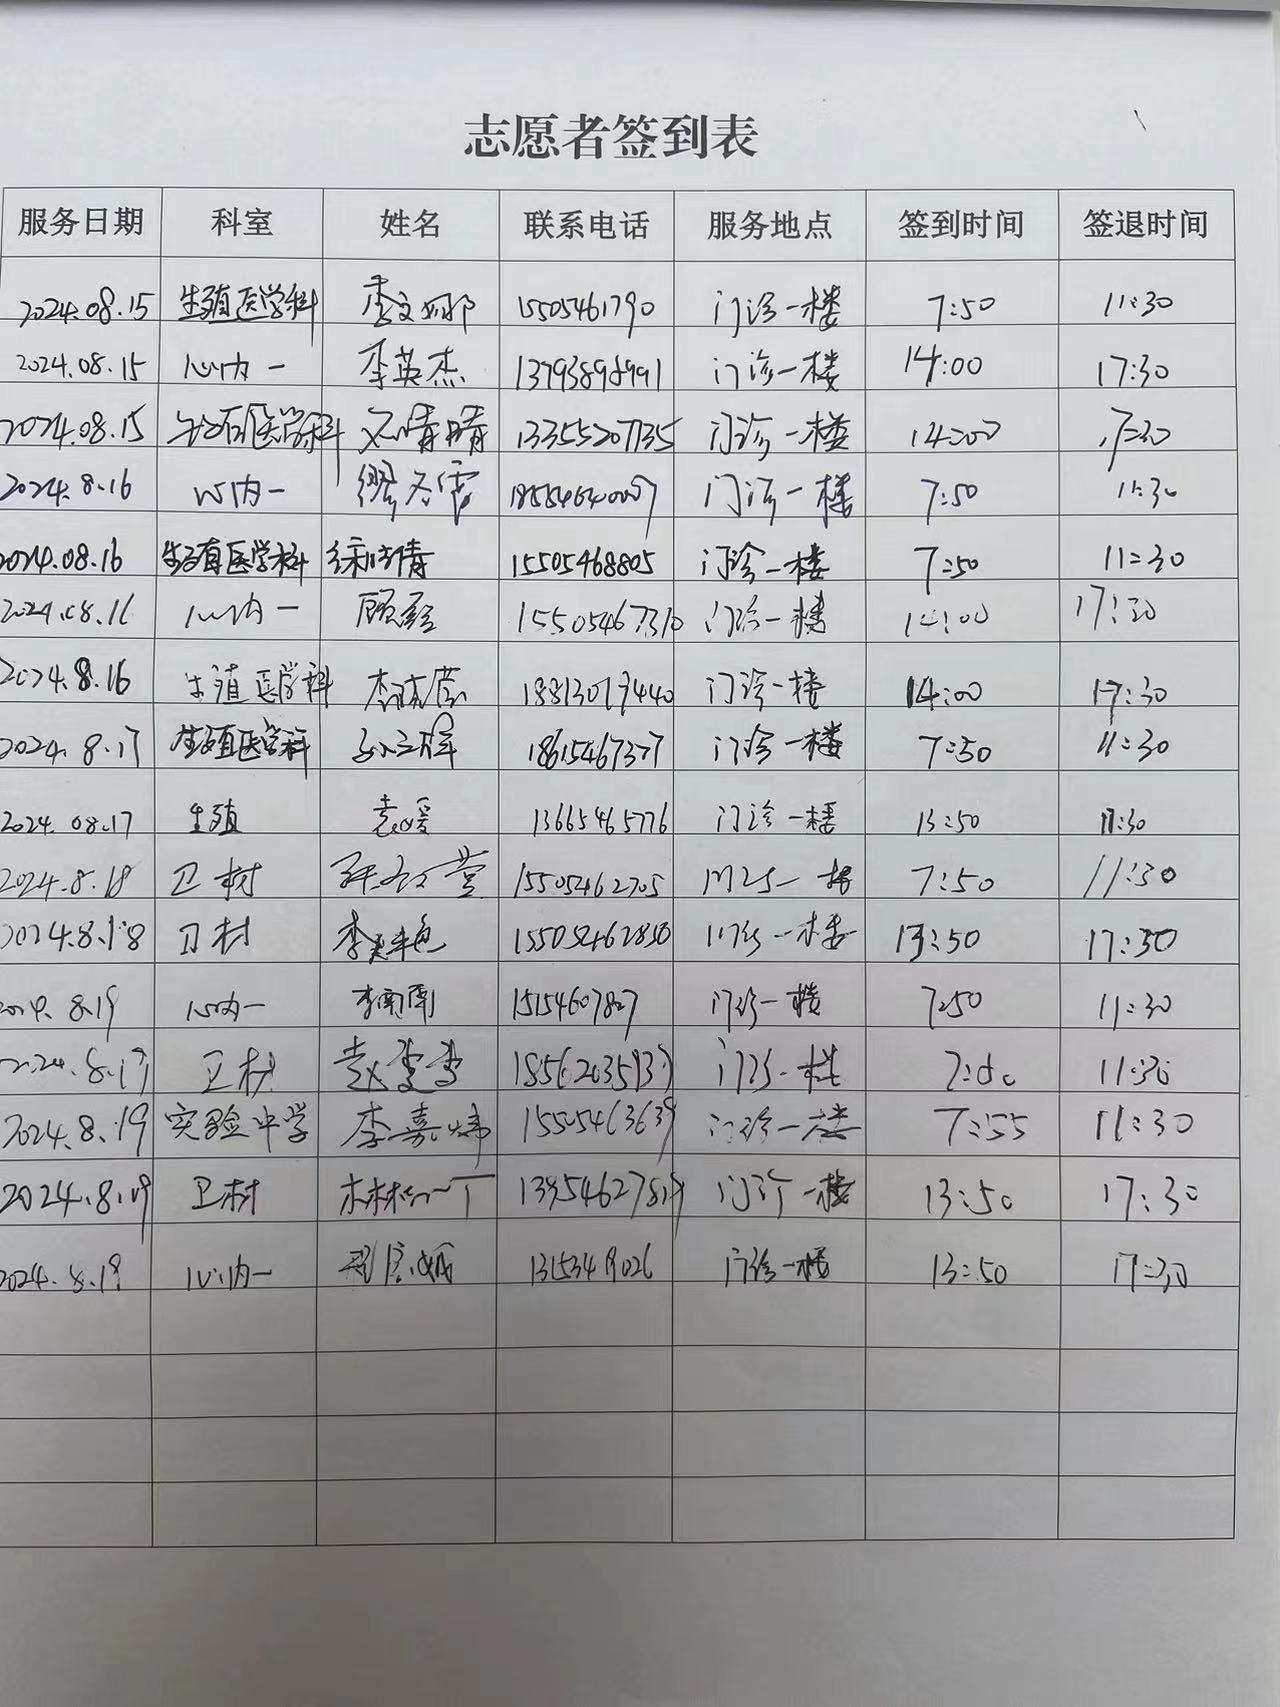 志愿者签到表
服务日期 科室 姓名 联系电话 服务地点 签到时间 签退时间
2024.08.15 生殖医学科 李文娜 15505461790 门诊一楼 7:50 11:30
2024.08.15 心内一 李英杰 门诊一楼 14:00 17:30
2024.08.15 生殖医学科 晴晴 13355207135 门诊一楼 14:00 17:30
2024.8.16 心内一 门诊一楼 7:50 11:30
2024.08.16 生殖医学科 15505468805 门诊一楼 7:50 11:30
2024.08.16 心内一 15505467310 门诊一楼 14:00 17:30
2024.8.16 生殖医学科 门诊一楼 14:00 17:30
2024.8.17 生殖医学科 18615467377 门诊一楼 7:50 11:30
2024.08.17 生殖 袁媛 13665465776 门诊一楼 13:50 17:30
2024.8.18 卫材 15505462705 门诊一楼 7:50 11:30
2024.8.18 卫材 李 15505462850 门诊一楼 13:50 17:30
2024.8.19 心内一 李南南 15154607827 门诊一楼 7:50 11:30
2024.8.19 卫材 18562035939 门诊一楼 7:50 11:30
2024.8.19 实验中学 李嘉 15505463639 门诊一楼 7:55 11:30
2024.8.19 卫材 门诊一楼 13:50 17:30
2024.8.19 心内一 门诊一楼 13:50 17:30